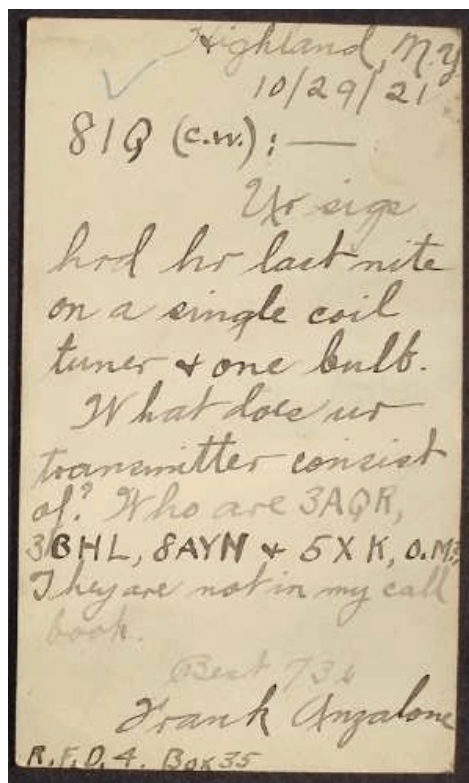 Highland, N.Y.
10/29/21
8IQ (c.w.) : —
Ur sigs
hrd hr last nite
on a single coil
tuner & one bulb.
What does ur
transmitter consist
of? Who are 3AQR,
3BHL, 8AYN & 5XK, O.M?
They are not in my call
book.
Best 73s
Frank Anzalone
R.F.D. 4. Box 35